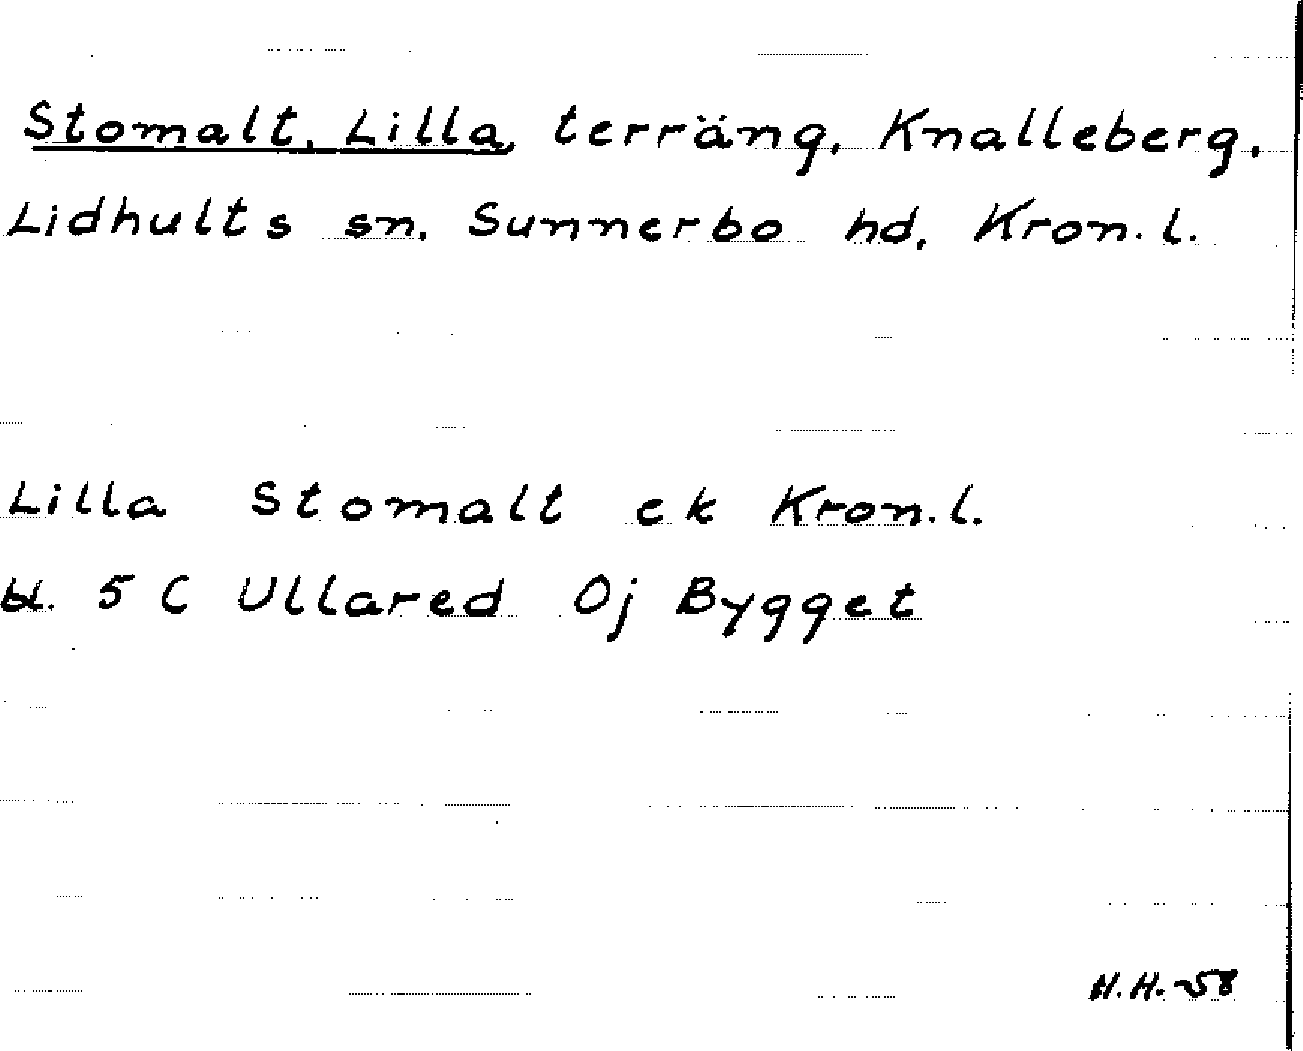 Stomalt, Lilla, terräng, Knalleberg,
Lidhults sn. Sunnerbo hd, Kron. l.
Lilla Stomalt ek Kron. l.
bl. 5 C Ullared Oj Bygget
H.H.-58